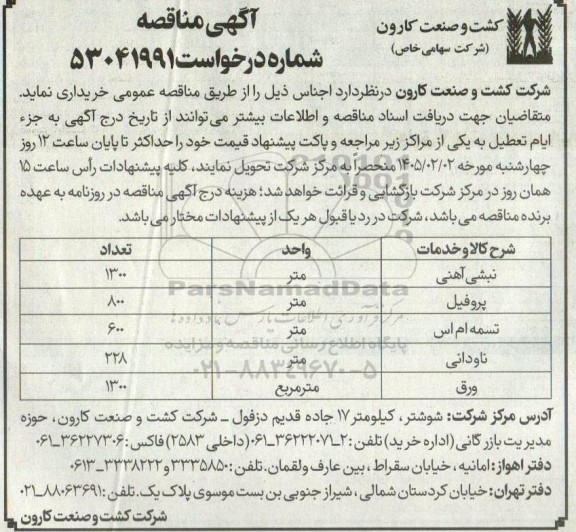 کشت و صنعت کارون
(شرکت سهامی خاص)
آگهی مناقصه
شماره درخواست ۵۳۰۴۱۹۹۱
شرکت کشت و صنعت کارون درنظردارد اجناس ذیل را از طریق مناقصه عمومی خریداری نماید.
متقاضیان جهت دریافت اسناد مناقصه و اطلاعات بیشتر می‌توانند از تاریخ درج آگهی به جزء
ایام تعطیل به یکی از مراکز زیر مراجعه و پاکت پیشنهاد قیمت خود را حداکثر تا پایان ساعت ۱۲ روز
چهارشنبه مورخه ۱۴۰۵/۰۲/۰۲ منحصرا به مرکز شرکت تحویل نمایند، کلیه پیشنهادات رأس ساعت ۱۵
همان روز در مرکز شرکت بازگشایی و قرائت خواهد شد؛ هزینه درج آگهی مناقصه در روزنامه به عهده
برنده مناقصه می باشد، شرکت در رد یا قبول هر یک از پیشنهادات مختار می‌باشد.
شرح کالا و خدمات واحد تعداد
نبشی آهنی متر ۱۳۰۰
پروفیل متر ۸۰۰
ParsNamadData
تسمه ام اس متر ۶۰۰
پایگاه اطلاع رسانی مناقصه و مزایده
ناودانی متر ۲۲۸
۰۲۱-۸۸۳۴۹۶۷۰-۵
ورق مترمربع ۱۳۰۰
آدرس مرکز شرکت: شوشتر، کیلومتر ۱۷ جاده قدیم دزفول ـ شرکت کشت و صنعت کارون، حوزه
مدیریت بازرگانی (اداره خرید) تلفن: ۲_۰۶۱_۳۶۲۲۲۰۷۱ (داخلی ۲۵۸۳) فاکس: ۰۶۱_۳۶۲۲۷۳۰۶
دفتر اهواز: امانیه، خیابان سقراط، بین عارف ولقمان. تلفن: ۳۳۳۵۸۵۰ و ۰۶۱۳_۳۳۳۸۲۲۲
دفتر تهران: خیابان کردستان شمالی، شیراز جنوبی بن بست موسوی پلاک یک. تلفن: ۰۲۱_۸۸۰۶۳۶۹۱
شرکت کشت و صنعت کارون